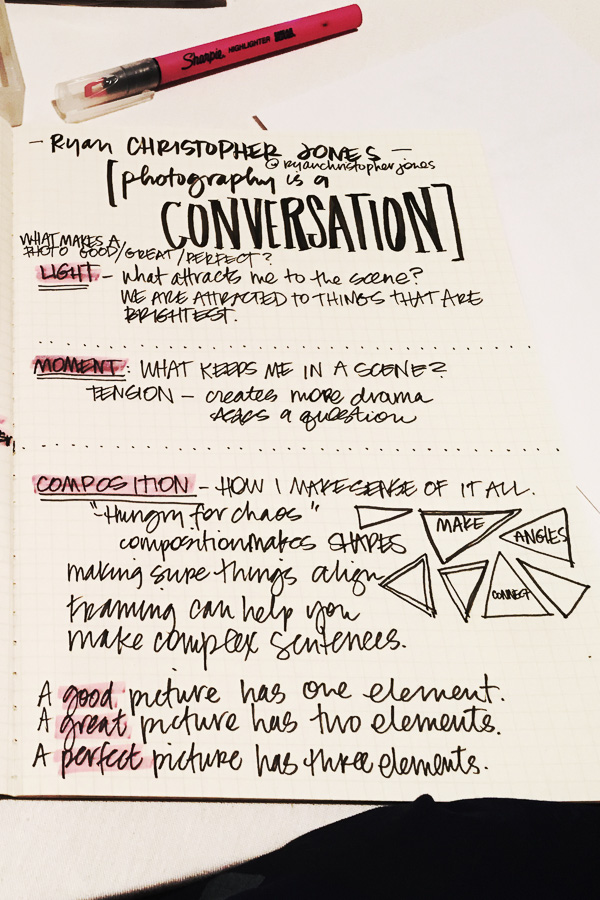 Sharpie. HIGHLIGHTER
- Ryan CHRISTOPHER JONES -
@ryanchristopherjones
[photography is a
CONVERSATION]
WHAT MAKES A
PHOTO GOOD/GREAT/PERFECT?
LIGHT - what attracts me to the scene?
WE ARE ATTRACTED TO THINGS THAT ARE
BRIGHTEST.
MOMENT: WHAT KEEPS ME IN A SCENE?
TENSION - creates more drama
asks a question
COMPOSITION - HOW I MAKE SENSE OF IT ALL.
"Hungry for chaos"
composition makes SHAPES
MAKE
ANGLES
CONNECT
making sure things align
framing can help you
make complex sentences.
A good picture has one element.
A great picture has two elements.
A perfect picture has three elements.